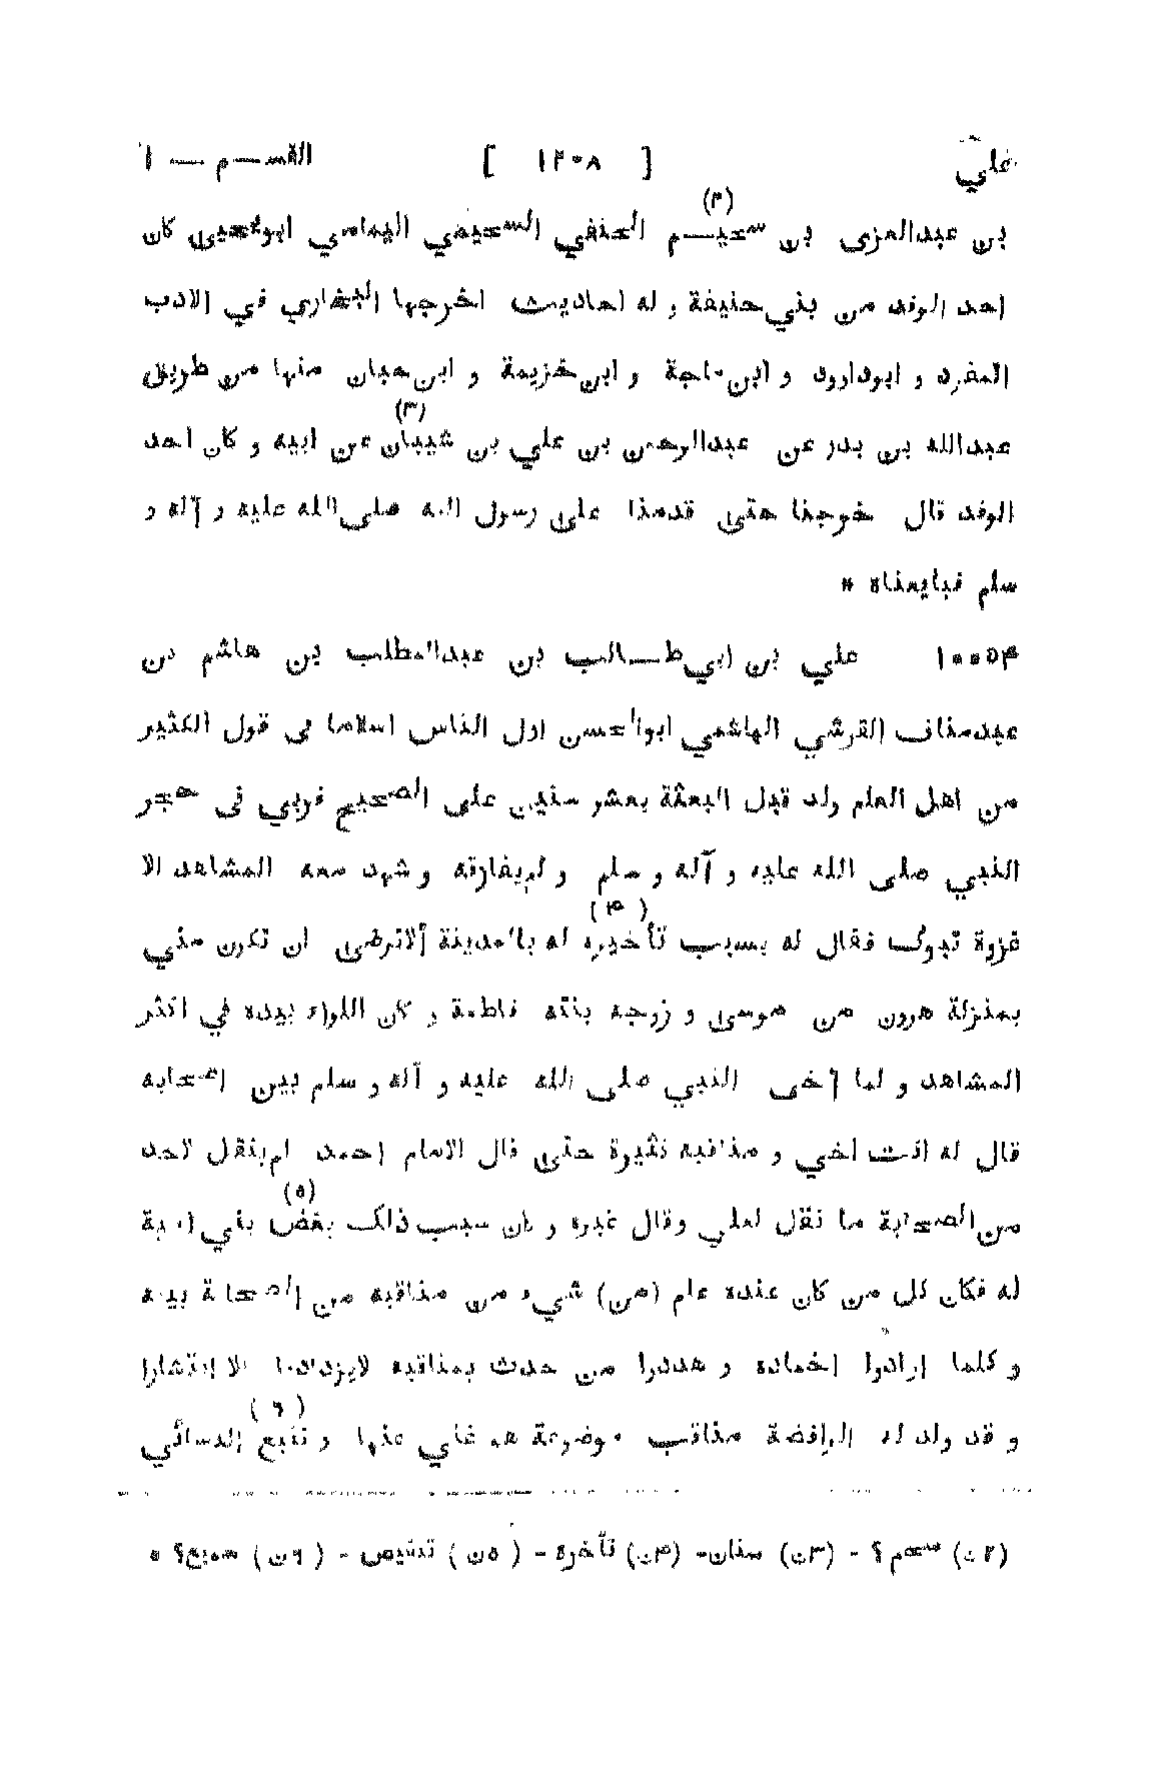 علي [ ١٢٠٨ ] القســم — ١
(٢)
بن عبدالعزى بن سحيــم الحنفي السحيمي اليمامي ابويحيى كان
احد الوفد من بني حنيفة و له احاديث اخرجها البخاري في الادب
المفرد و ابوداوود و ابن ماجة و ابن خزيمة و ابن حبان منها من طريق
(٣)
عبدالله بن بدر عن عبدالرحمن بن علي بن شيبان عن ابيه و كان احد
الوفد قال خرجنا حتى قدمنا على رسول الله صلى الله عليه و آله و
سلم فبايعناه *
١٠٠٥٤ علي بن ابي طــالب بن عبدالمطلب بن هاشم بن
عبدمناف القرشي الهاشمي ابوالحسن اول الناس اسلاما في قول الكثير
من اهل العلم ولد قبل البعثة بعشر سنين على الصحيح فربي فى حجر
النبي صلى الله عليه و آله و سلم و لم يفارقه و شهد معه المشاهد الا
(٤)
غزوة تبوك فقال له بسبب تأخيره له بالمدينة ألاترضى ان تكون مني
بمنزلة هرون من موسى و زوجه بنته فاطمة و كان اللواء بيده في اكثر
المشاهد و لما آخى النبي صلى الله عليه و آله و سلم بين اصحابه
قال له انت اخي و مناقبه كثيرة حتى قال الامام احمد لم ينقل لاحد
(٥)
من الصحابة ما نقل لعلي وقال غيره و كان سبب ذلك بغض بني امية
له فكان كل من كان عنده علم (من) شيء من مناقبه من الصحابة يبثه
و كلما ارادوا اخماده و هددوا من حدث بمناقبه لايزداد الا انتشارا
(٦)
و قد ولد له الرافضة مناقب موضوعة هو غني عنها و تتبع النسائي
(٢ن) سحم؟ - (٣ن) سنان- (٤ن) تأخره - (٥ن) تنقيص - (٦ن) جميع؟ *